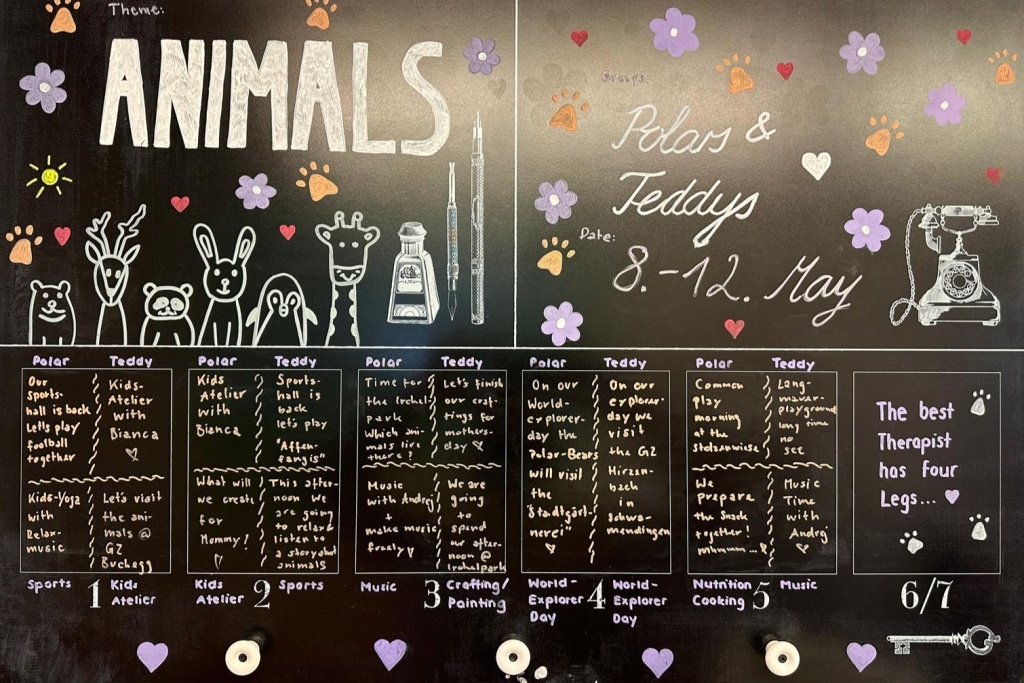 Theme:
ANIMALS
Groups:
Polars &
Teddys
Date:
8.-12. May
Polar
Our
sports-
hall is back
Let's play
football
together
Teddy
Kids-
Atelier
with
Bianca
Kids-Yoga
with
Relax-
music
Let's visit
the ani-
mals @
GZ
Buchegg
Sports
1
Kids
Atelier
Polar
Kids
Atelier
with
Bianca
Teddy
Sports-
hall is
back
let's play
"Affen-
fangis"
What will
we create
for
Mommy?
This after-
noon we
are going
to relax &
listen to
a story about
animals
Kids
Atelier
2
Sports
Polar
Time for
the Irchel
park
Which ani-
mals live
there?
Teddy
Let's finish
our craf-
tings for
mothers-
day
Music
with Andrej
+
make music
freely
We are
going
to
spend
our after-
noon @
Irchelpark
Music
3
Crafting/
Painting
Polar
On our
World-
explorer-
day the
Polar-Bears
will visit
the
"Stadtgärt-
nerei"
Teddy
On our
explorer-
day we
visit
the GZ
Hirzen-
bach
in
Schwa-
mendingen
World-
Explorer
Day
4
World-
Explorer
Day
Polar
Common
play
morning
at the
Stolzewiese
Teddy
Lang-
mauer-
playground
long time
no
see
We
prepare
the Snack
together!
mhmmm...
Music
Time
with
Andrej
Nutrition
Cooking
5
Music
The best
Therapist
has four
Legs...
6/7